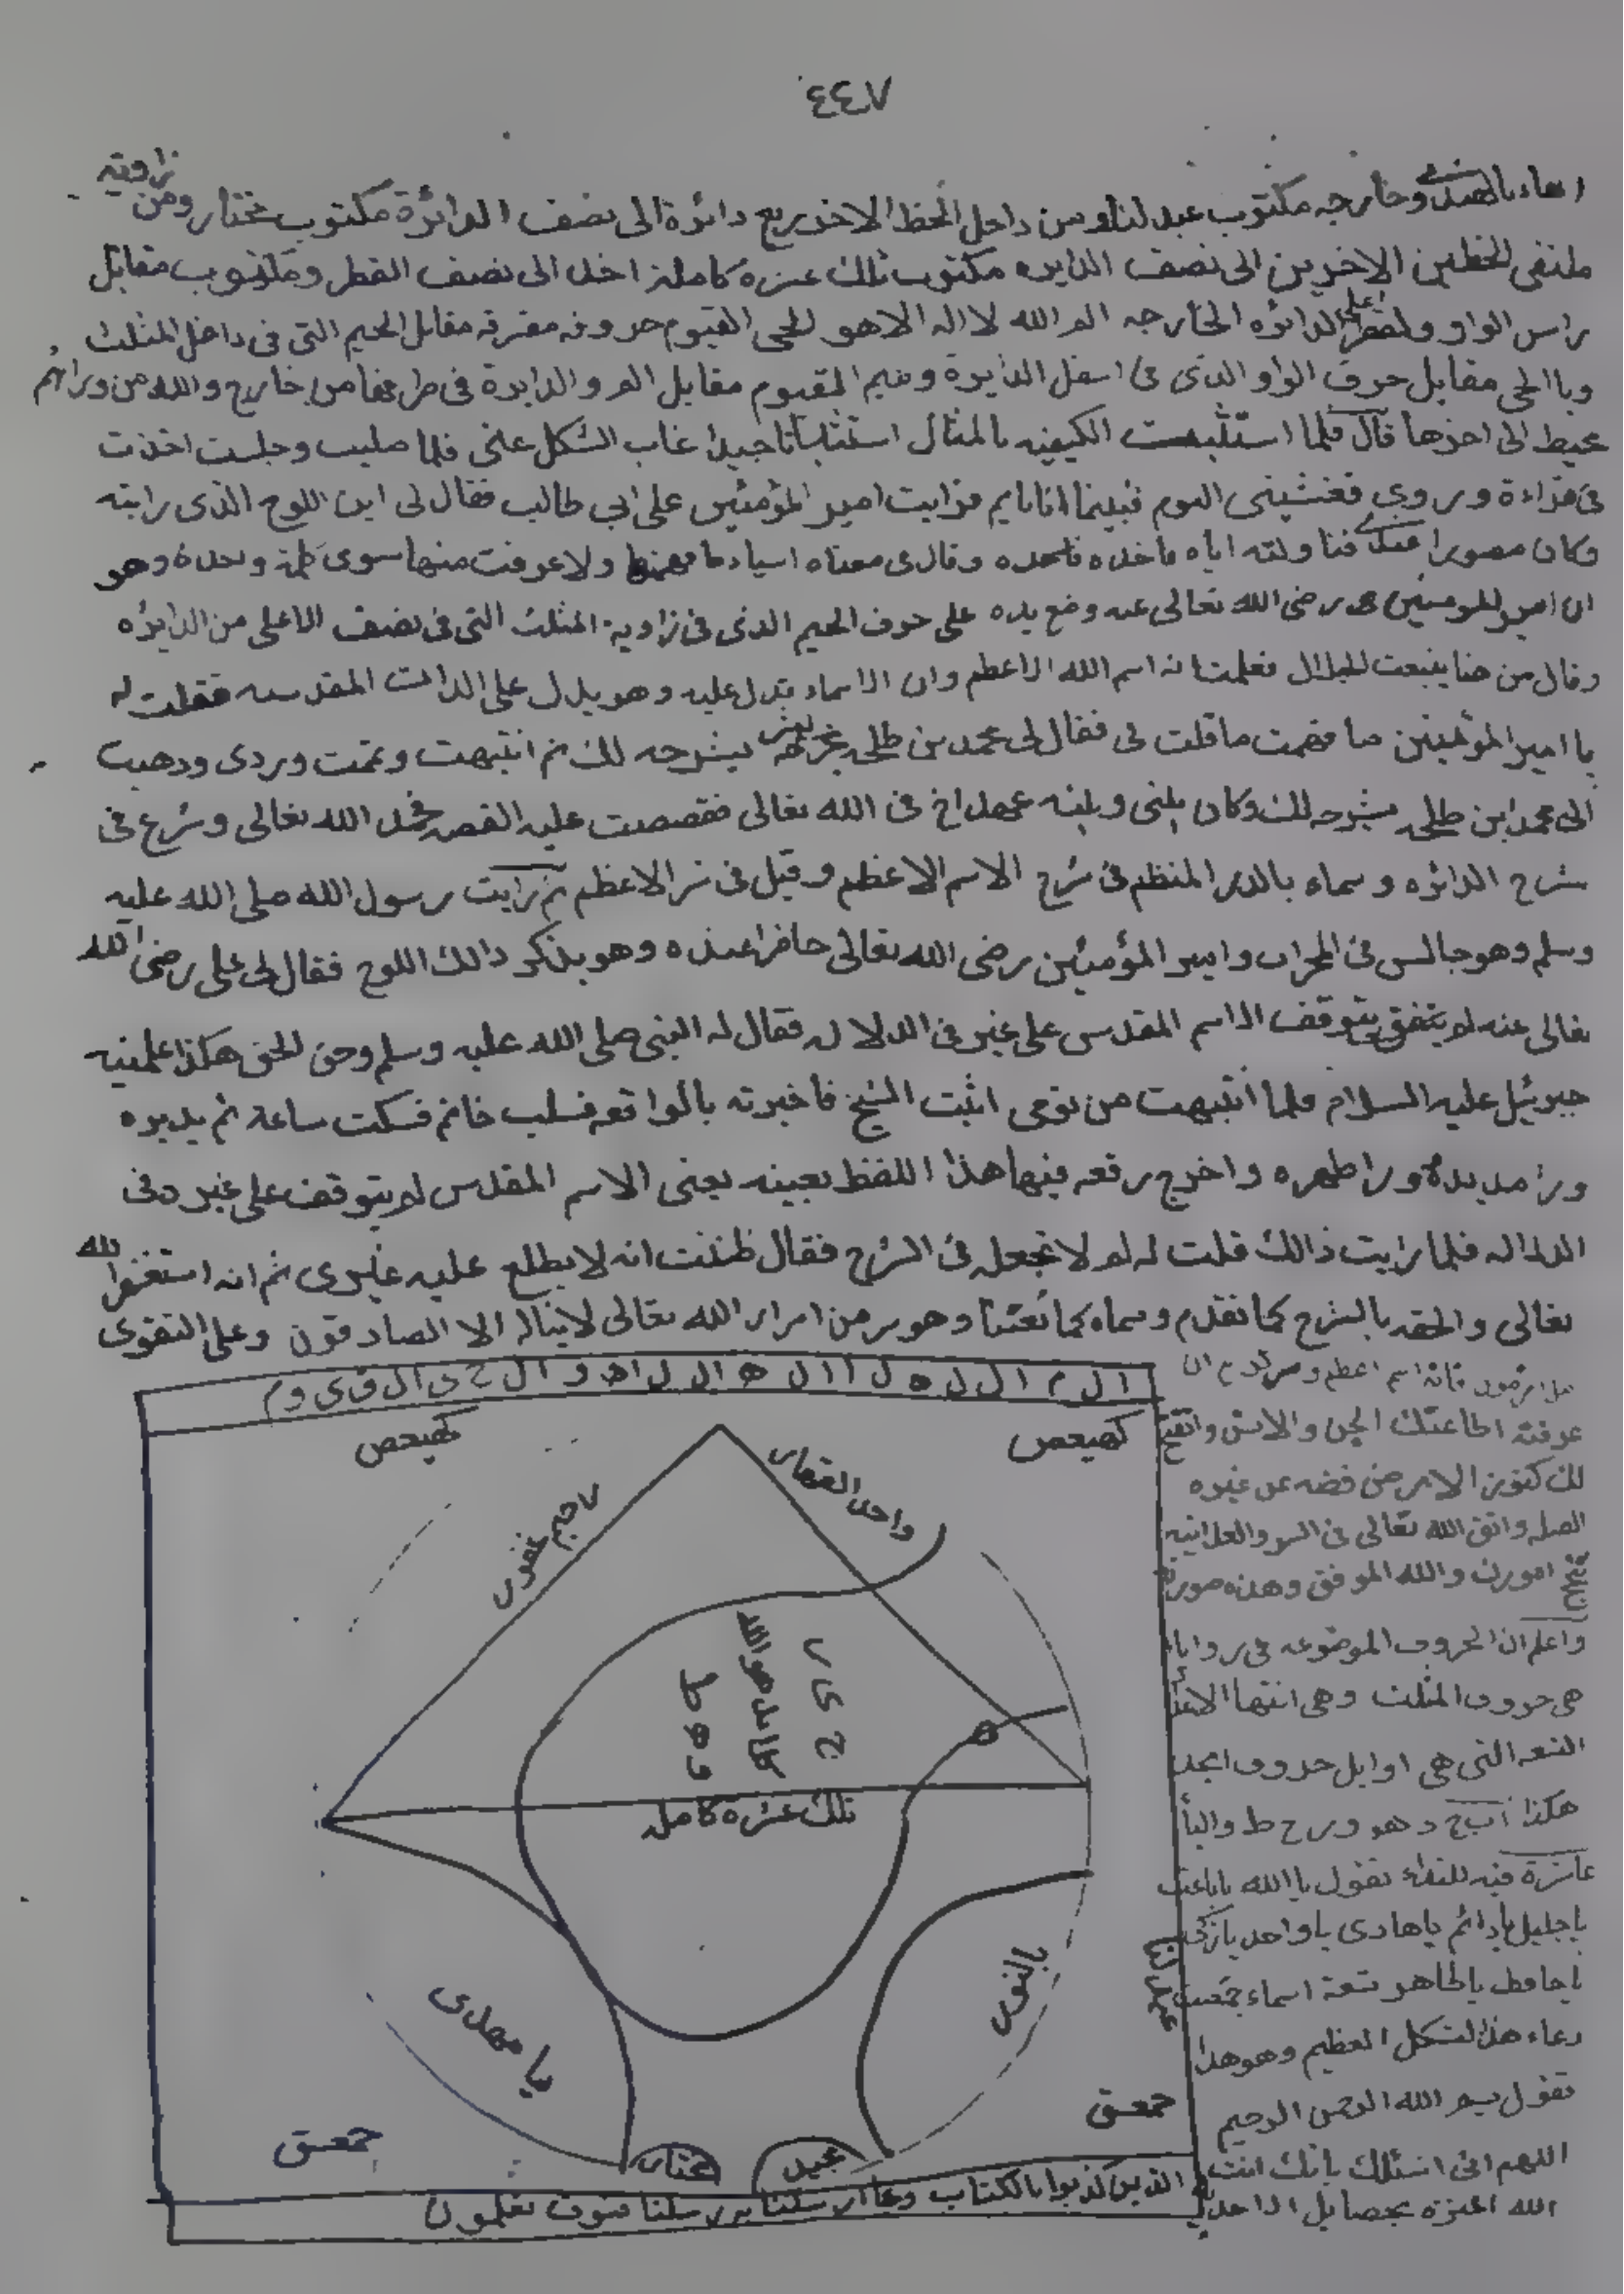 ٤٤٧
وخارجه مكتوب عبد لنا ومن داخل الخط الاخر ربع دائرة الى نصف الدائرة مكتوب مختار ومن زاوية
ملتقى الخطين الاخرين الى نصف الدايره مكتوب تلك عشره كاملة اخذ الى نصف القطر ومكتوب مقابل
راس الواو اعلى الدائره الخارجه الم الله لا اله الا هو الحى القيوم حروفه مفترقه مقابل الجيم التى فى داخل المثلث
ويا الحى مقابل حرف الواو الذى فى اسفل الدايرة وميم القيوم مقابل الم والدايرة فى من خارج والله من ورائهم
محيط الى اخرها قال فلما استثبت الكيفيه بالمثال استثباتا جيدا غاب الشكل عنى فلما صليت وجلست اخذت
فى قراءة وردى فغشينى النوم فبينما انا نايم فرايت امير المؤمنين على ابى طالب فقال لى اين اللوح الذى رايته
وكان مصورا عندى فناولته اياه فاخذه وقال فى معناه اسيادما ولا عرفت منها سوى كلمة وحدة وهو
ان امير المومنين رضى الله تعالى عنه وضع يده على حرف الجيم الذى فى زاوية المثلث التى فى نصف الاعلى من الدايره
وقال من هنا ينبعث الجلال فعلمت انه اسم الله الاعظم وان الاسماء تدل عليه وهو يدل على الذات المقدسه فقلت له
يا امير المؤمنين ما فهمت ما قلت لى فقال لى محمد بن طلحه يشرحه لك ثم انتبهت وتممت وردى وذهبت
الى محمد ابن طلحه يشرحه لك وكان بينى وبينه عهد اخ فى الله تعالى فقصصت عليه القصه فحمد الله تعالى وشرع فى
شرح الدائره وسماه بالدر المنظم فى شرح الاسم الاعظم وقيل فى سر الاعظم ثم رايت رسول الله صلى الله عليه
وسلم وهو جالس فى المحراب وامير المؤمنين رضى الله تعالى حاضرا عنده وهو يذكر ذالك اللوح فقال لى على رضى الله
تعالى عنه لم يتوقف الاسم المقدس على غير فى الدلاله فقال له النبى صلى الله عليه وسلم وحق الحق هكذا علمنيه
جبرئيل عليه السلام فلما انتبهت من نومى اتيت الشيخ فاخبرته بالواقعه فسلب خاتم فسكت ساعة ثم يديره
ورا ظهره واخرج رقعه فيها هذا اللفظ بعينه يعنى الاسم المقدس لم يتوقف على غير دفى
الدلاله فلما رايت ذالك قلت له لم لا تجعله فى الشرح فقال ظننت انه لا يطلع عليه غيرى ثم انه استغفر الله
تعالى والحقه بالشرح كما تقدم وسماه كما نعتنا وهو سر من اسرار الله تعالى لا يناله الا الصادقون وعلى التقوى
فانه اسم اعظم
عرفته اطاعتك الجن والانس وانفتح
لك كنوز الارض فضه عن غيره
الصله واتق الله تعالى فى السر والعلانيه
تنجح امورك والله الموفق وهذه صورته
واعلم ان الحروف الموضوعه فى روايا
هى حروف المثلث وهى
التسعه التى هى اوايل حروف ابجد
هكذا ا ب ج د ه و ز ح ط واليأ
عاشرة فيه للنداء تقول يا الله يا باعث
يا جليل يا دائم يا هادى يا واحد يا زكى
يا حافظ يا طاهر تسعة اسماء جمعت
دعاء هذا الشكل العظيم وهو هذا
تقول بسم الله الرحمن الرحيم
اللهم انى اسئلك بانك انت
الله
ا ل م ا ل ل ه ل ا ا ل ه ا ل ا ه و ا ل ح ى ا ل ق ى و م
كهيعص
كهيعص
واحد القهار
غفور
ج ى ر
كامل هو الله
و ه ط
تلك عشره كامله
عبد لنا
بالنور
يا مهدى
حمعسق
حمعسق
مختار
الذين كذبوا بالكتاب وبما ارسلنا به رسلنا فسوف تعلمون